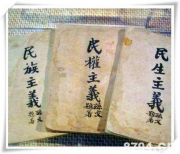 民族主義
孫文著
民權主義
孫文著
民生主義
孫文著